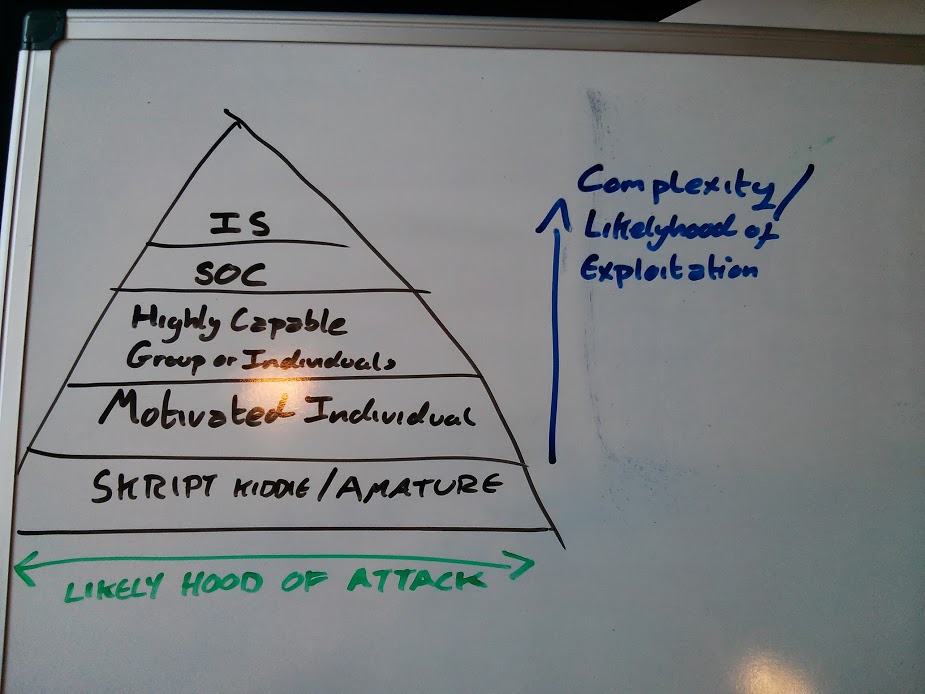 IS
SOC
Highly Capable
Group or Individuals
Motivated Individual
SKRIPT KIDDIE/AMATURE
LIKELY HOOD OF ATTACK
Complexity/
Likelyhood of
Exploitation